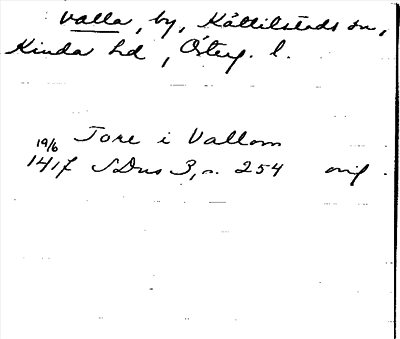 Valla, by, Kättilstads sn,
Kinda hd, Österg. l.
19/6 Tore i Vallom
1417 SDns 3, s. 254 orig.